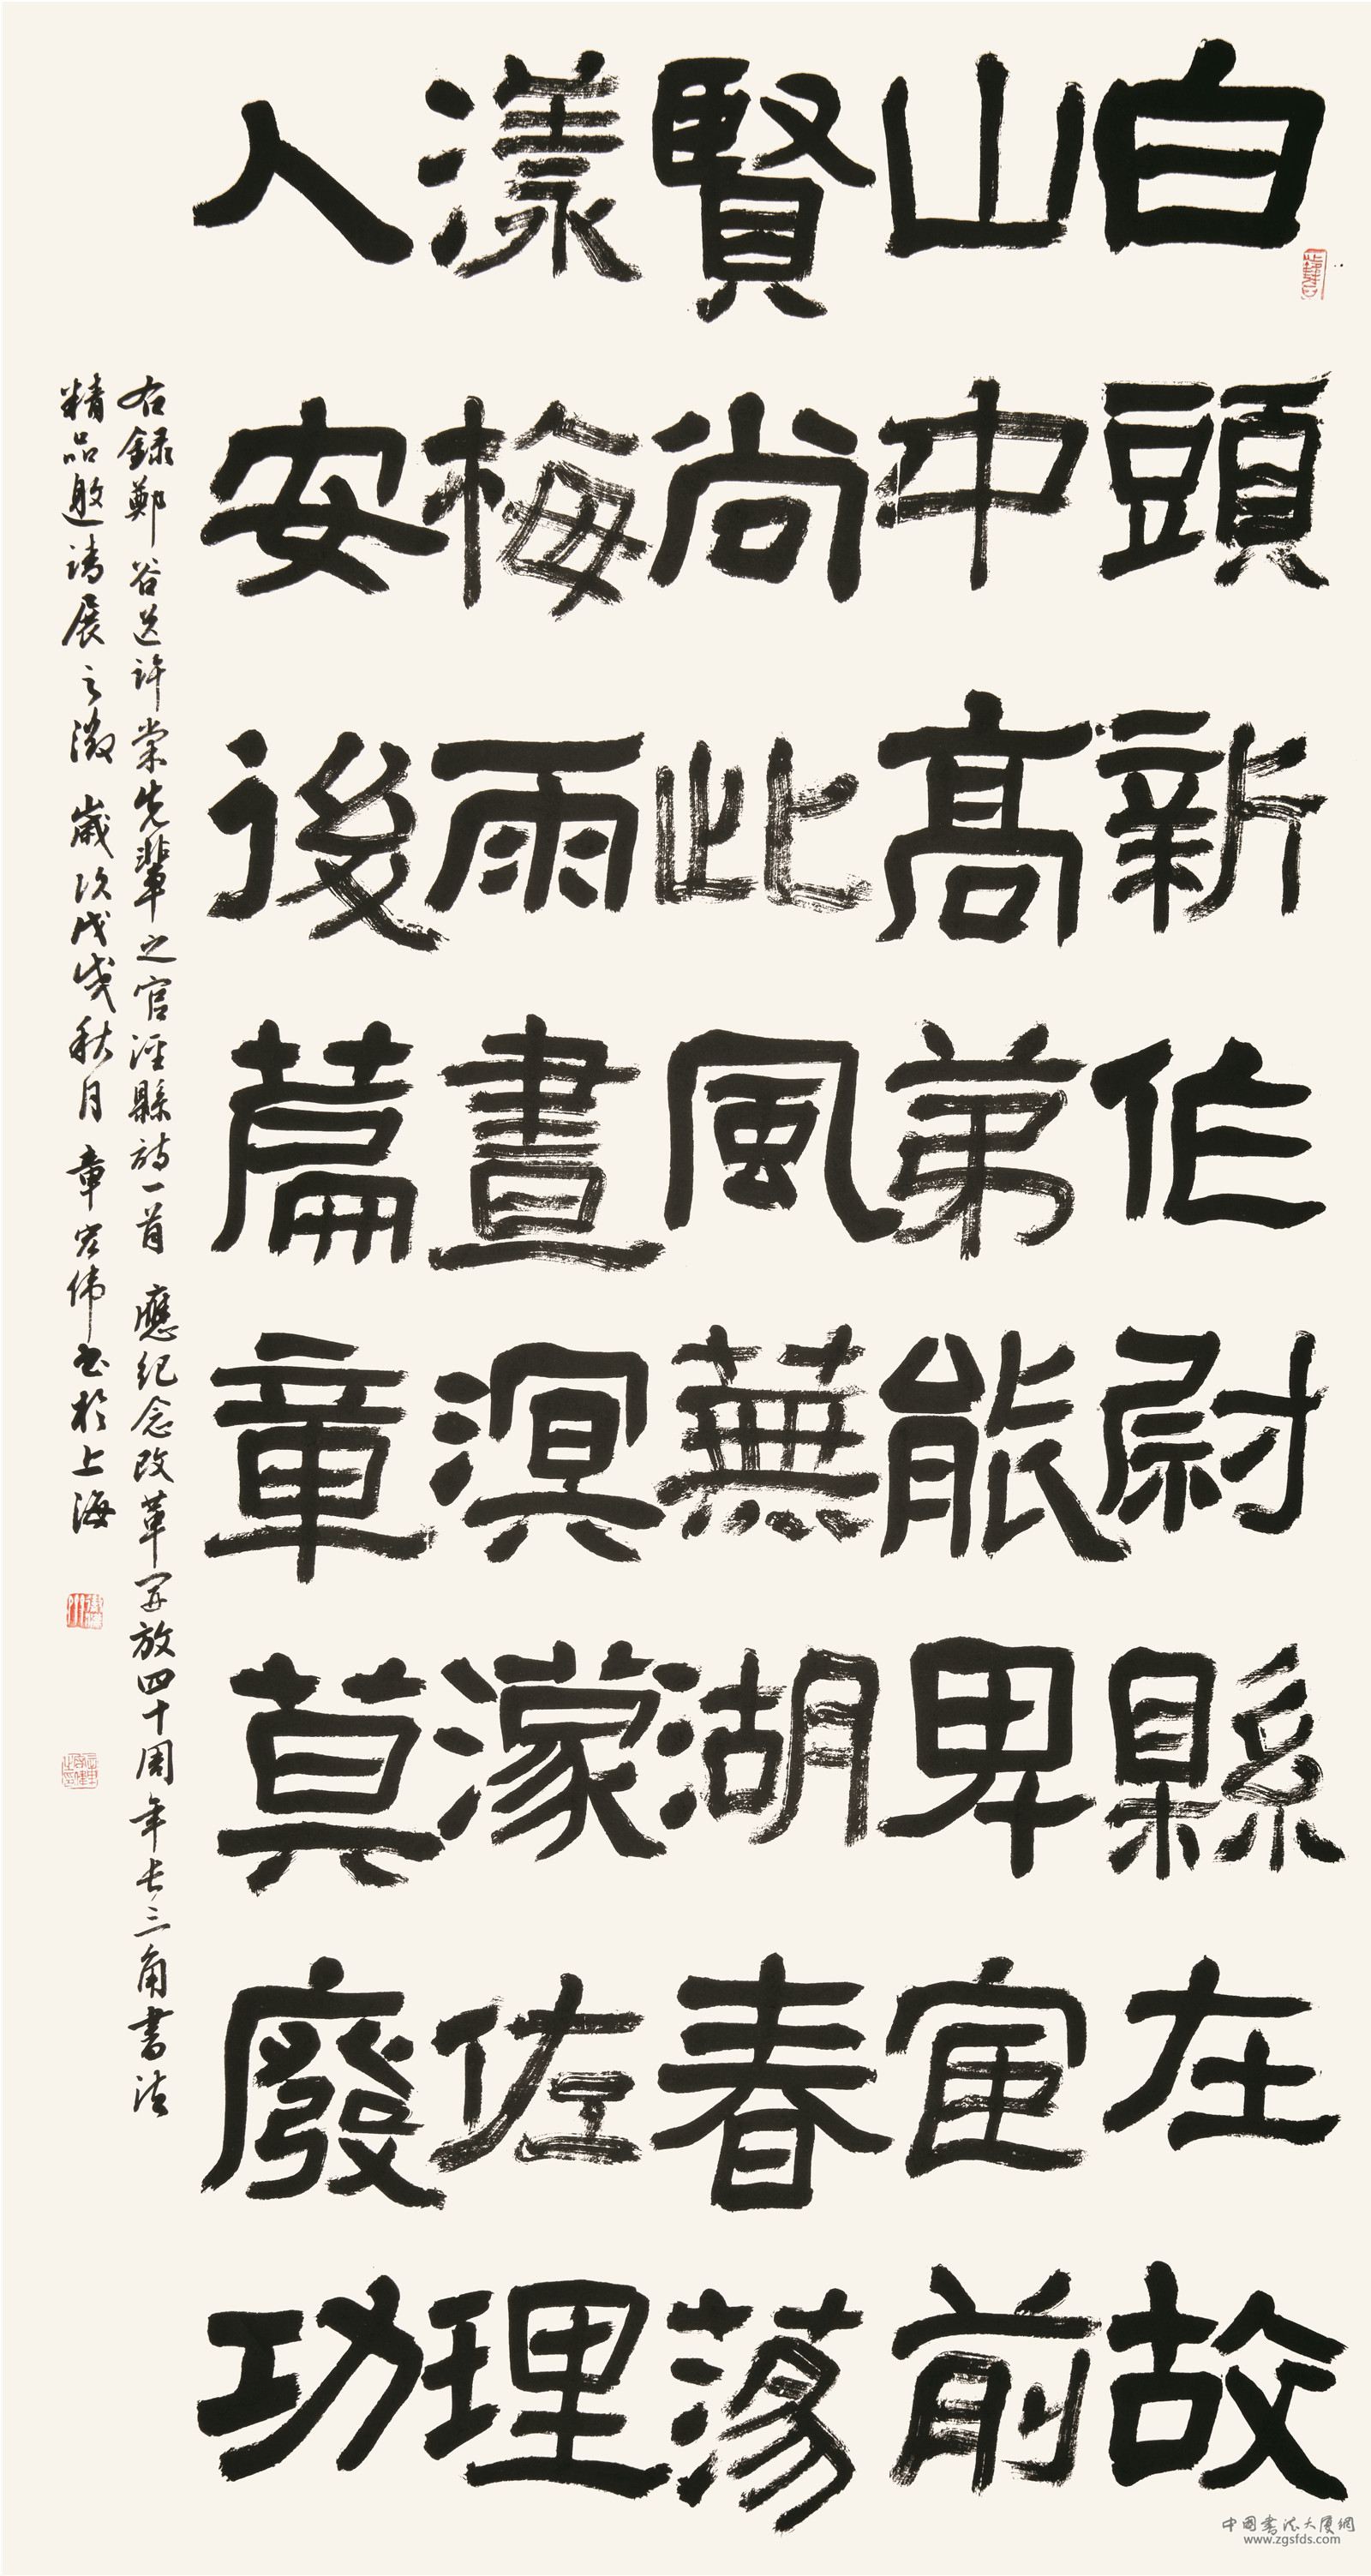 白頭新作尉縣在故
山中高第能卑宦前
賢尚此風蕪湖春蕩
漾梅雨晝溟濛佐理
人安後篇章莫廢功
右録鄭谷送許棠先輩之官涇縣詩一首 應紀念改革开放四十周年长三角書法
精品邀请展之激 歲次戊戌秋月 章宏伟书於上海
中國書法大厦網
www.zgsfds.com